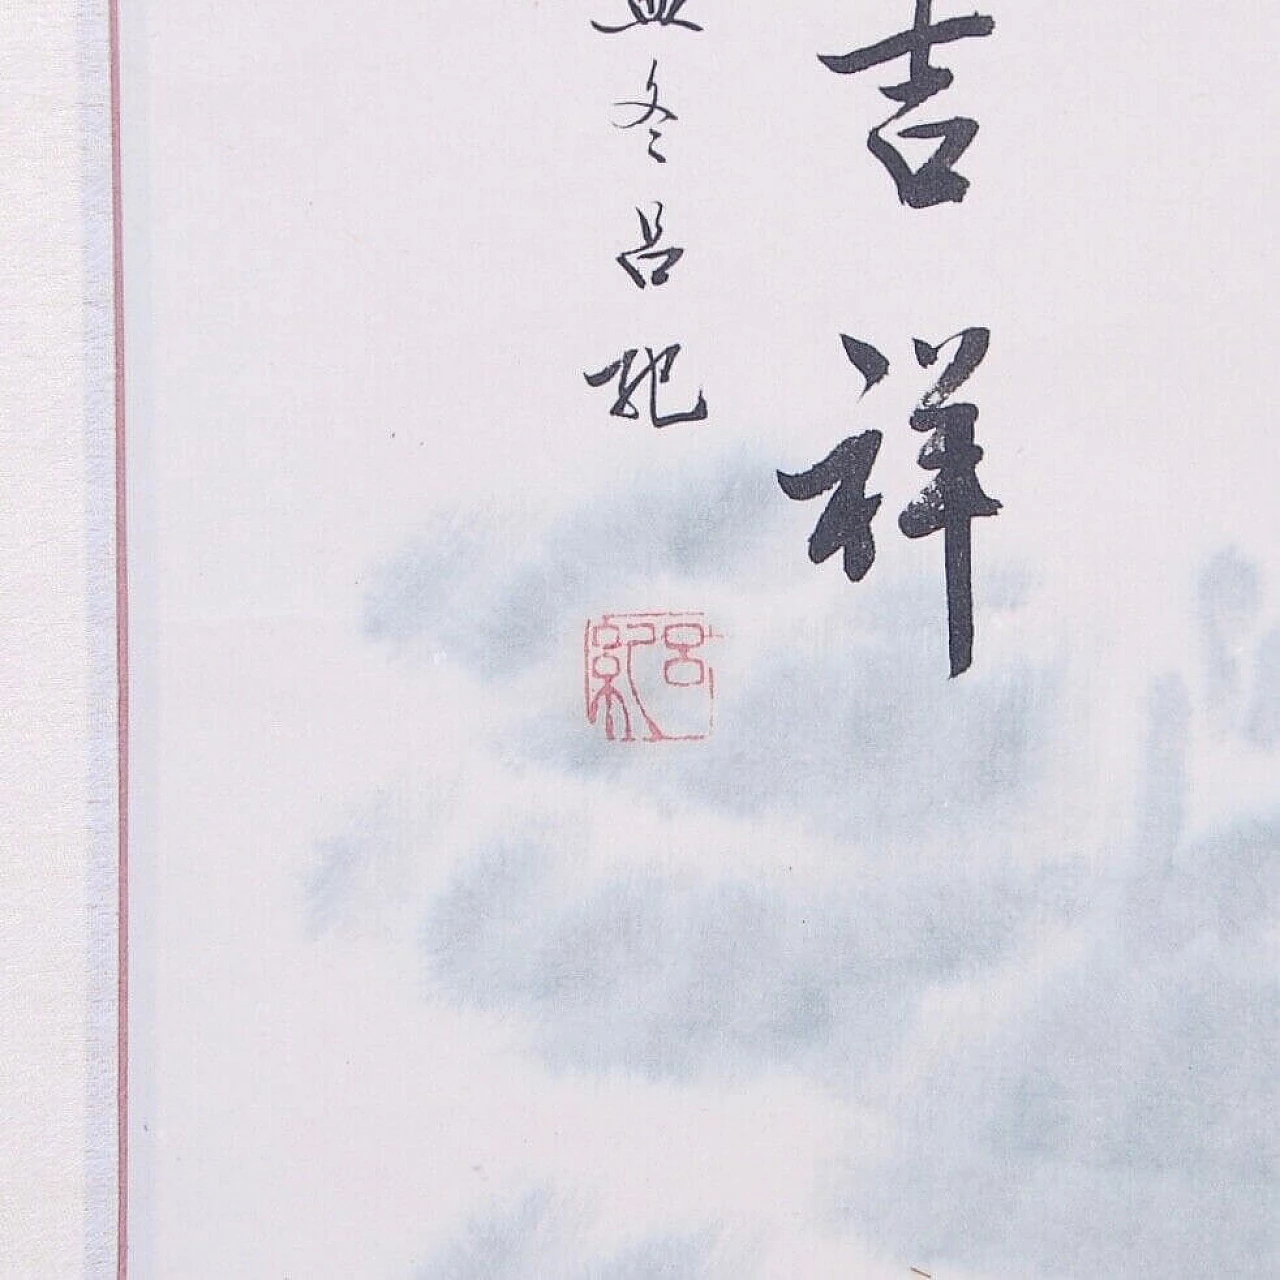 吉祥
冬吕纪
吕纪